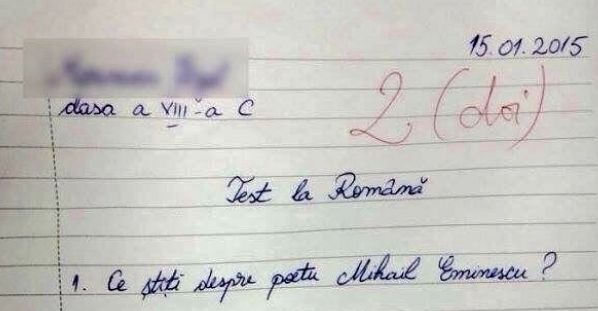 15.01.2015
clasa a VIII-a C
2 (doi)
Test la Română
1. Ce știți despre poetu Mihail Eminescu?